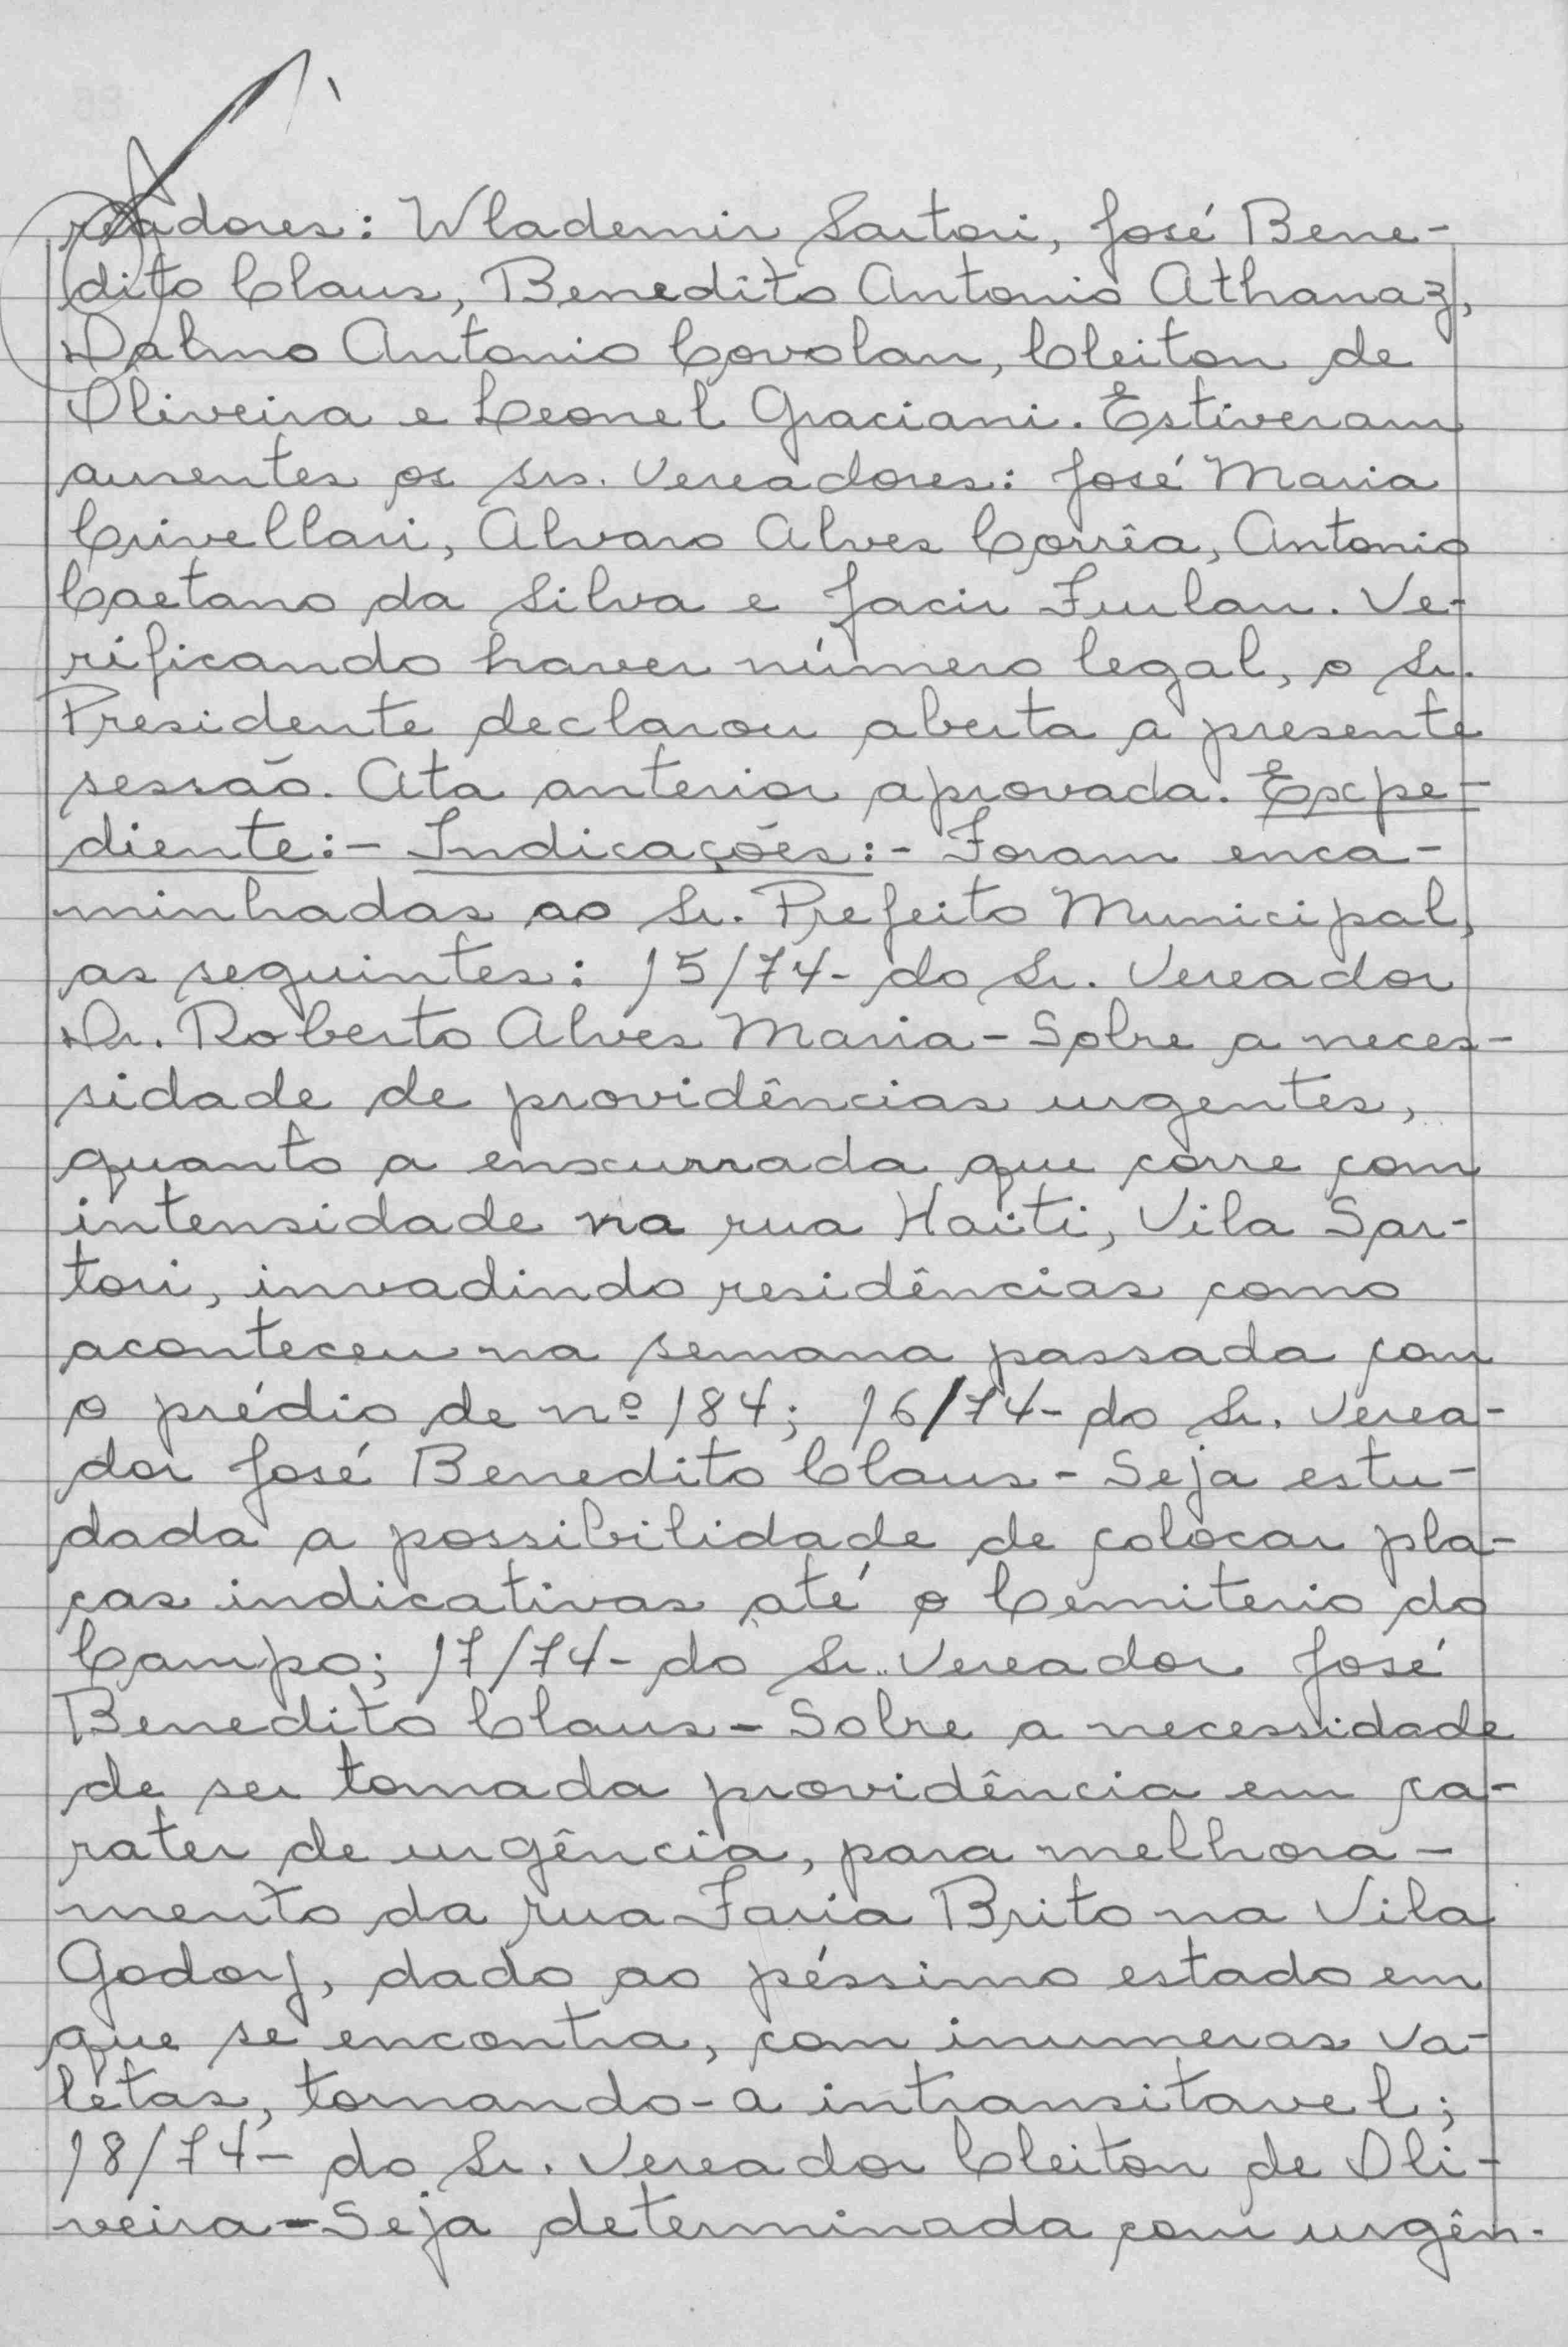 readores: Wlademir Sartori, José Bene-
dito Claus, Benedito Antonio Athanaz,
Dalmo Antonio Covolan, Cleiton de
Oliveira e Leonel Graciani. Estiveram
ausentes os srs. Vereadores: José Maria
Crivellari, Alvaro Alves Corrêa, Antonio
Caetano da Silva e Jacir Furlan. Ve-
rificando haver número legal, o Sr.
Presidente declarou aberta a presente
sessão. Ata anterior aprovada. Expe-
diente:- Indicações:- Foram enca-
minhadas ao Sr. Prefeito Municipal,
as seguintes: 15/74- do Sr. Vereador
Dr. Roberto Alves Maria - Sobre a neces-
sidade de providências urgentes,
quanto a enxurrada que corre com
intensidade na rua Haiti, Vila Sar-
tori, invadindo residências como
aconteceu na semana passada com
o prédio de nº 184; 16/74- do Sr. Verea-
dor José Benedito Claus - Seja estu-
dada a possibilidade de colocar pla-
cas indicativas até o Cemiterio do
Campo; 17/74- do Sr. Vereador José
Benedito Claus - Sobre a necessidade
de ser tomada providência em ca-
rater de urgência, para melhora-
mento da rua Faria Brito na Vila
Godoy, dado ao péssimo estado em
que se encontra, com inumeras va-
letas, tornando-a intransitavel;
18/74- do Sr. Vereador Cleiton de Oli-
veira - Seja determinada com urgên-